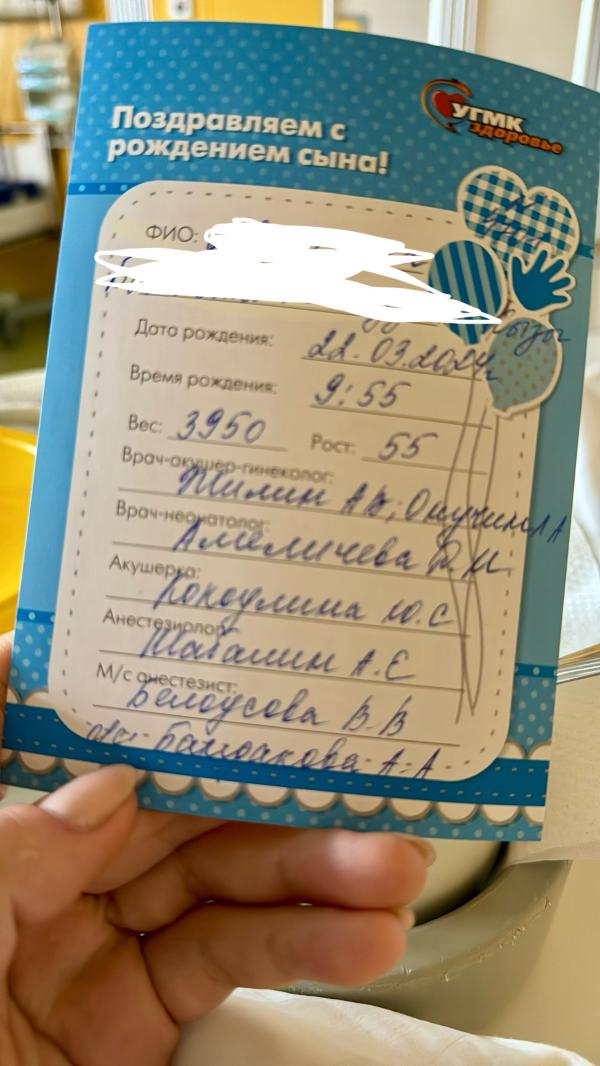 УГМК
здоровье
Поздравляем с
рождением сына!
ФИО:
Дата рождения: 22.03.2024
Время рождения: 9:55
Вес: 3950 Рост: 55
Врач-акушер-гинеколог:
Жилин А.В;
Врач-неонатолог:
Амеличева
Акушерка:
Кокоулина Ю.С
Анестезиолог:
Шабалин А.Е
М/с анестезист:
Белоусова В.В
А.А